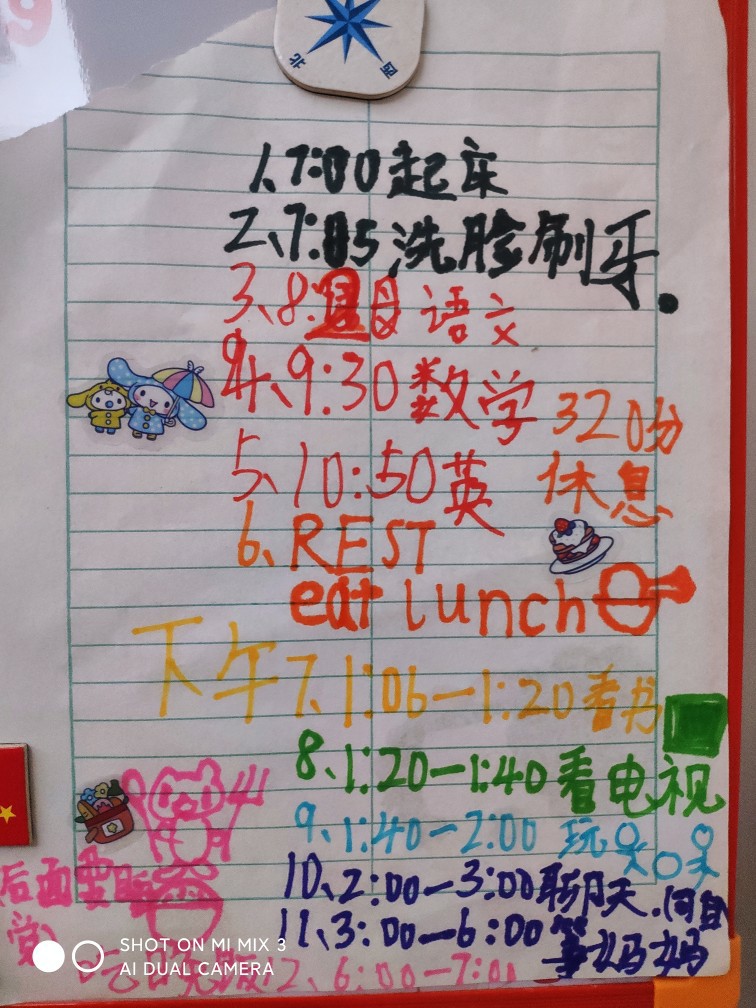 北 西
1、7:00起床
2、7:05洗脸刷牙.
3、8: 语文
4、9:30数学
320分
5、10:50英
休息
6、REST
eat lunch
下午7、1:06—1:20看书
8、1:20—1:40看电视
9、1:40—2:00玩
10、2:00—3:00聊天.
11、3:00—6:00等妈妈
后面要睡
觉
晚饭12、6:00—7:00
SHOT ON MI MIX 3
AI DUAL CAMERA